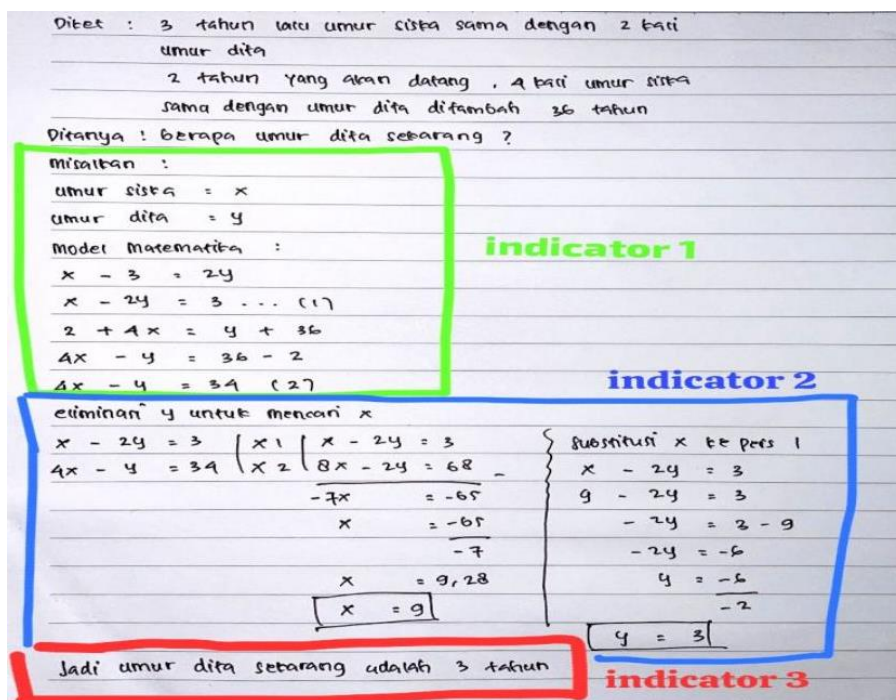 Diket : 3 tahun lalu umur siska sama dengan 2 kali
umur dita
2 tahun yang akan datang, 4 kali umur siska
sama dengan umur dita ditambah 36 tahun
Ditanya : berapa umur dita sekarang ?
misalkan :
umur siska = x
umur dita = y
model matematika :
indicator 1
x - 3 = 2y
x - 2y = 3 ... (1)
2 + 4x = y + 36
4x - y = 36 - 2
4x - y = 34 (2)
indicator 2
eliminasi y untuk mencari x
x - 2y = 3 | x1 | x - 2y = 3
4x - y = 34 | x 2 | 8x - 2y = 68 -
-7x = -65
x = -65
-7
x = 9,28
x = 9
substitusi x ke pers 1
x - 2y = 3
9 - 2y = 3
- 2y = 3 - 9
- 2y = -6
y = -6
-2
y = 3
Jadi umur dita sekarang adalah 3 tahun
indicator 3